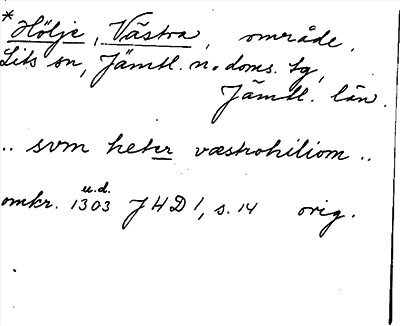 *Hölje, Västra, område,
Lits sn, Jämtl. n. doms. tg,
Jämtl. län.
.. svm heter væstrohiliom ..
u.d.
omkr. 1303 JHD 1, s. 14 orig.